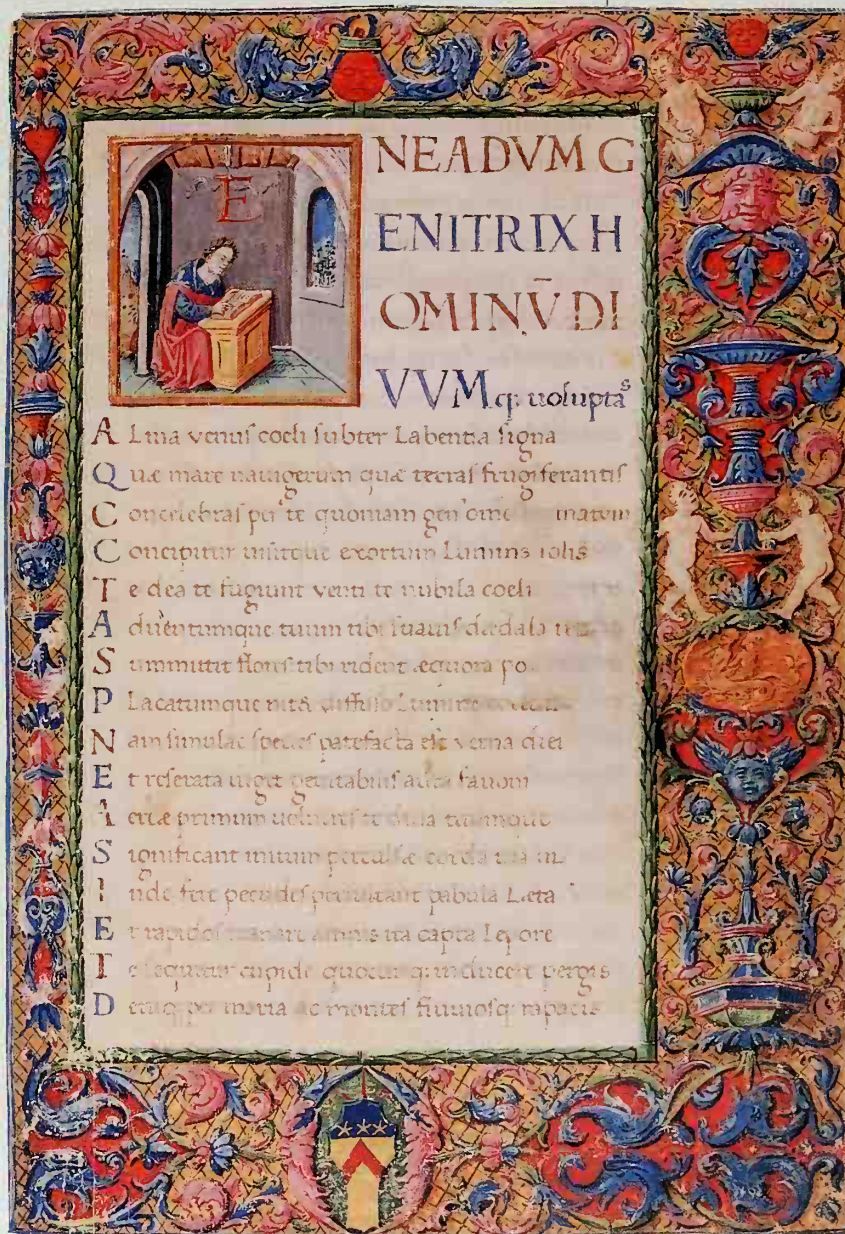 E
NEADVM G
ENITRIX H
OMINV̄ DI
VVM.q: uolupta s
A Lma venus coeli subter Labentia signa
Q uæ mare nauigerum quæ terras frugiferantis
C oncelebras per te quoniam gen' omne
C oncipitur uisitque exortum Luminis solis
T e dea te fugiunt venti te nubila coeli
A duentumque tuum tibi suauis dædala
S ummittit floris tibi rident æquora po
P Lacatumque nitet diffuso Lumine
N am simulac species patefacta est verna diei
E t reserata uiget genitabilis aura fauoni
A eriæ primum uolucris te diua tuumque
S ignificant initum perculsæ corda tua
I nde feræ pecudes persultant pabula Læta
E t rapidos tranare amnis ita capta Lepore
T e sequitur cupide quocunq: inducere pergis
D eniq: per maria ac montes fluuiosq: rapacis